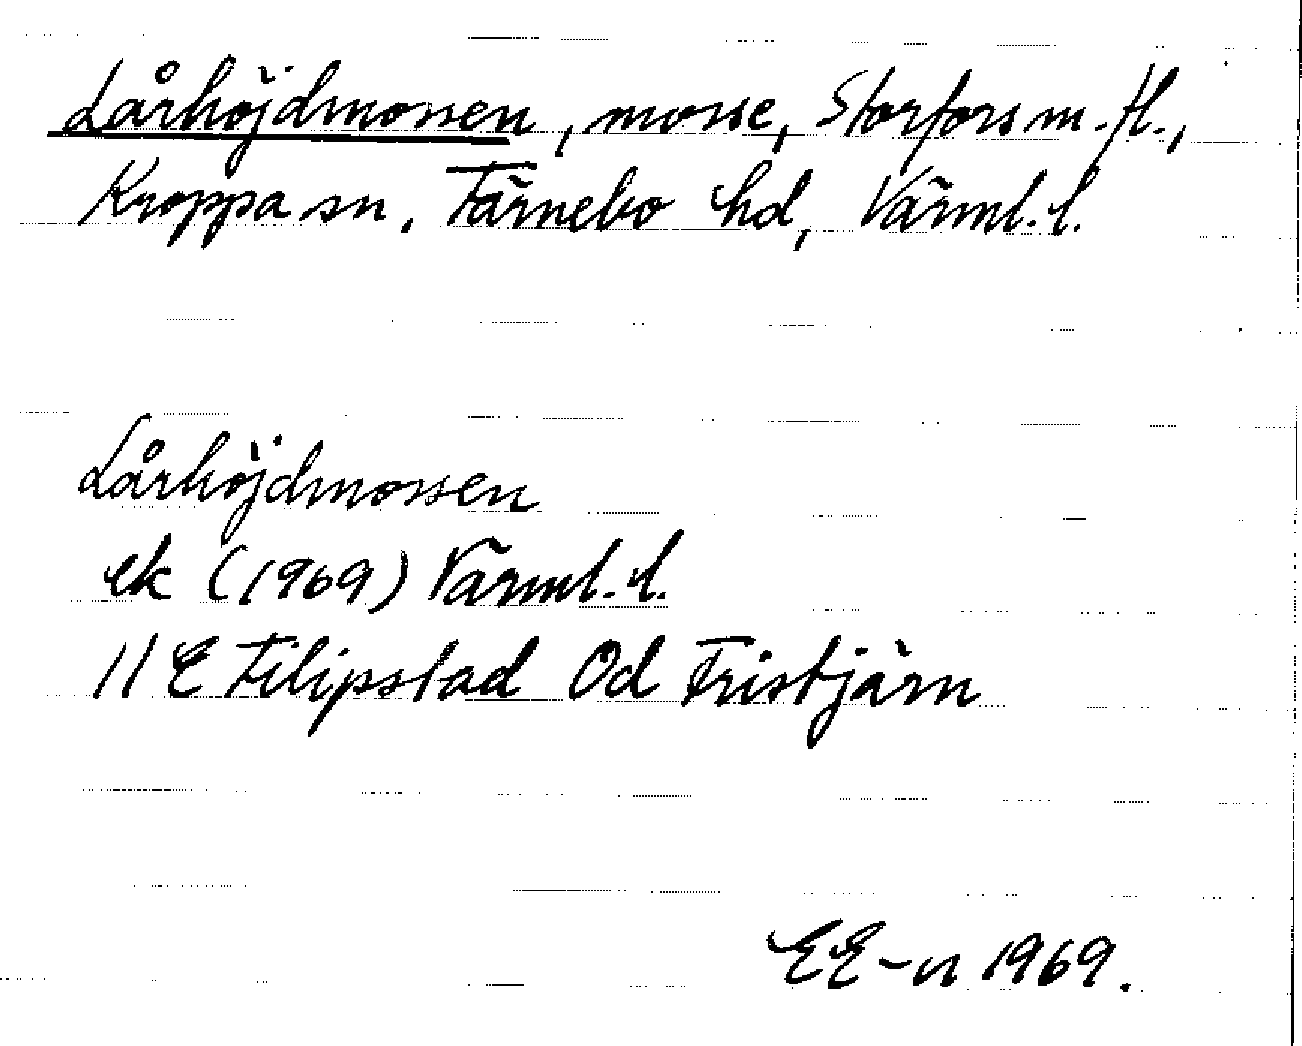 Lårhöjdmossen, mosse, Storfors m.fl.,
Kroppa sn, Färnebo hd, Värml. l.
Lårhöjdmossen
ek (1969) Värml. l.
11 E Filipstad 0d Fristjärn
EE-n 1969.